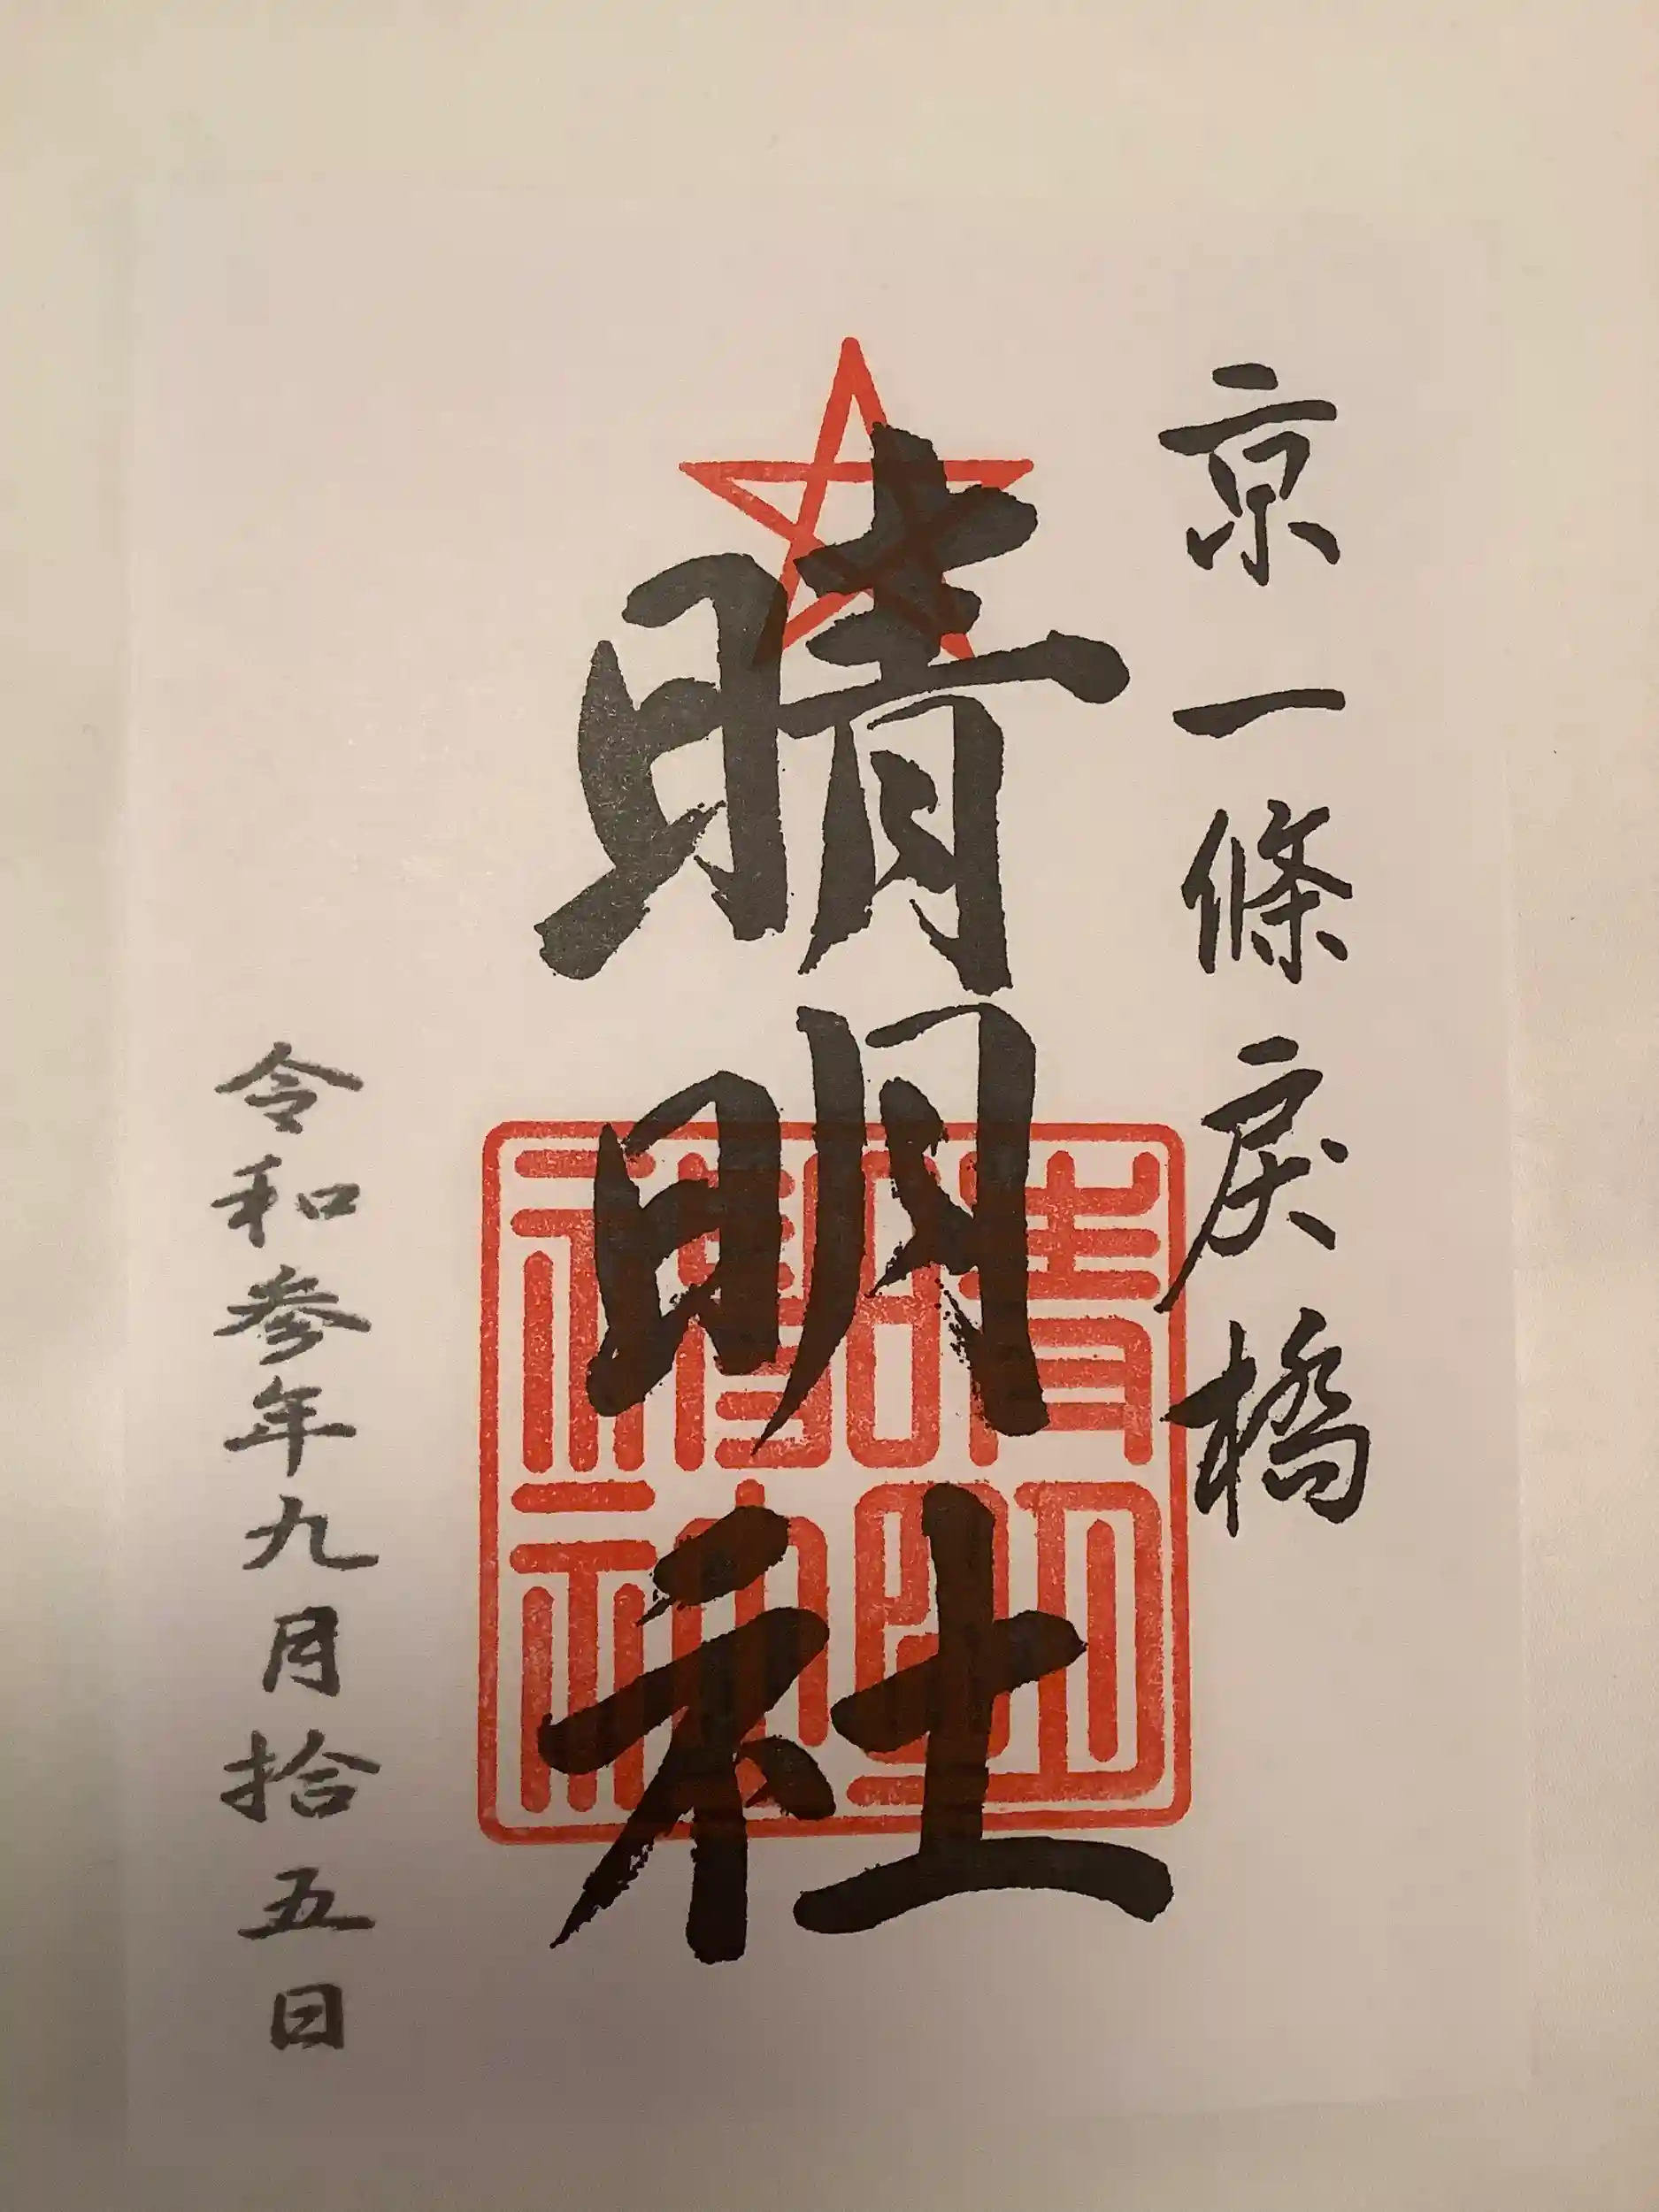 京一條戻橋
晴明社
晴明神社
令和参年九月拾五日